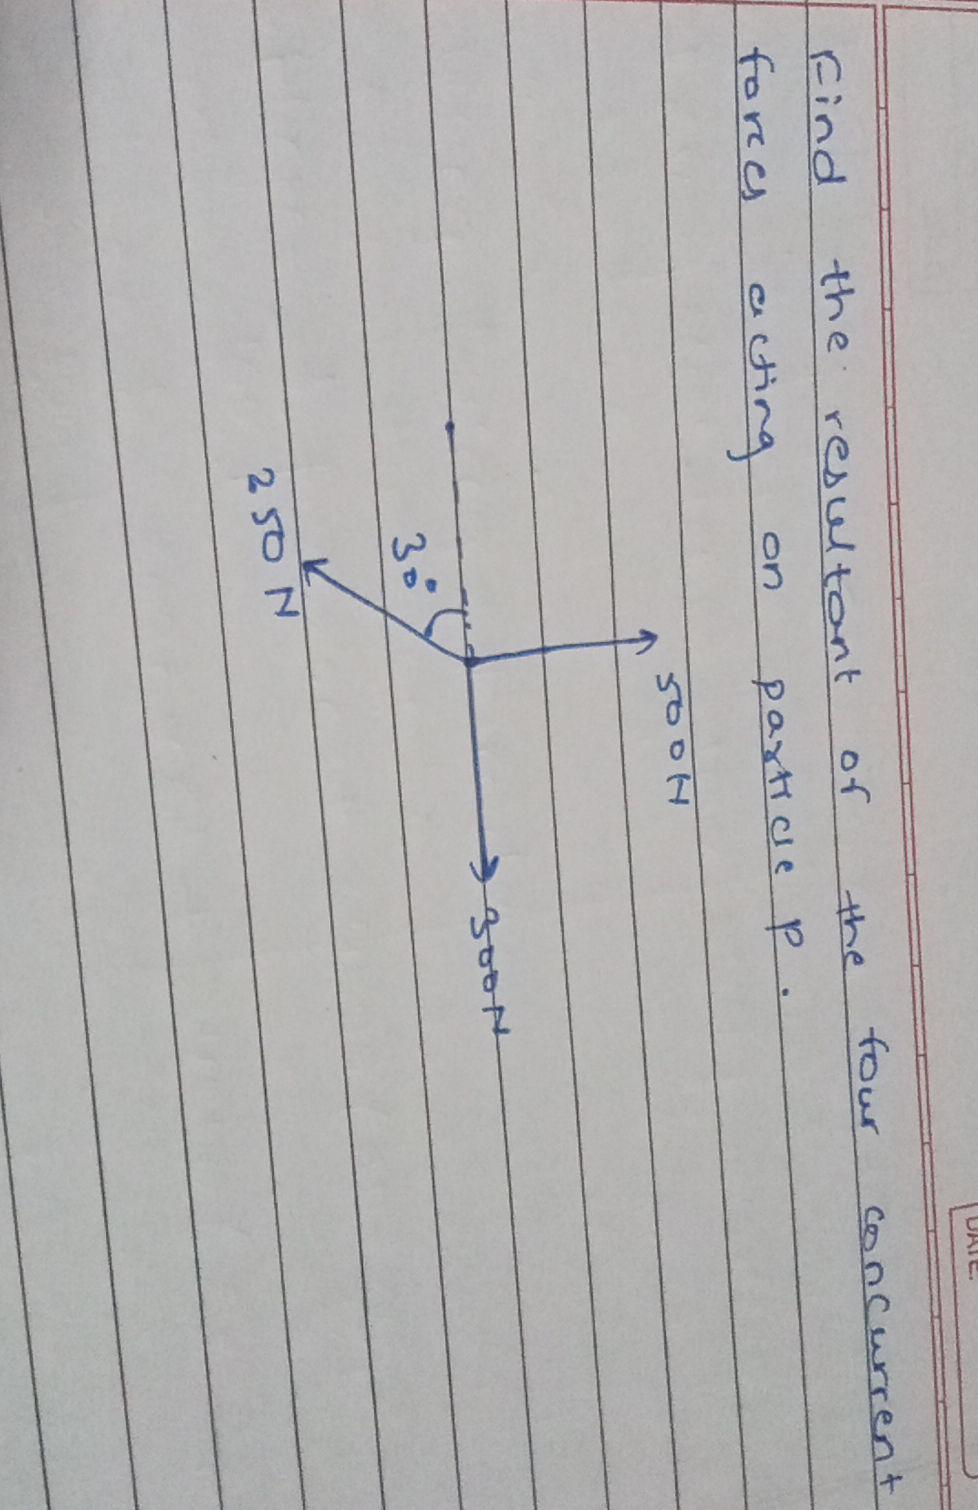 DATE:
Find the resultant of the four concurrent
forces acting on particle P.
500N
300N
30°
250N